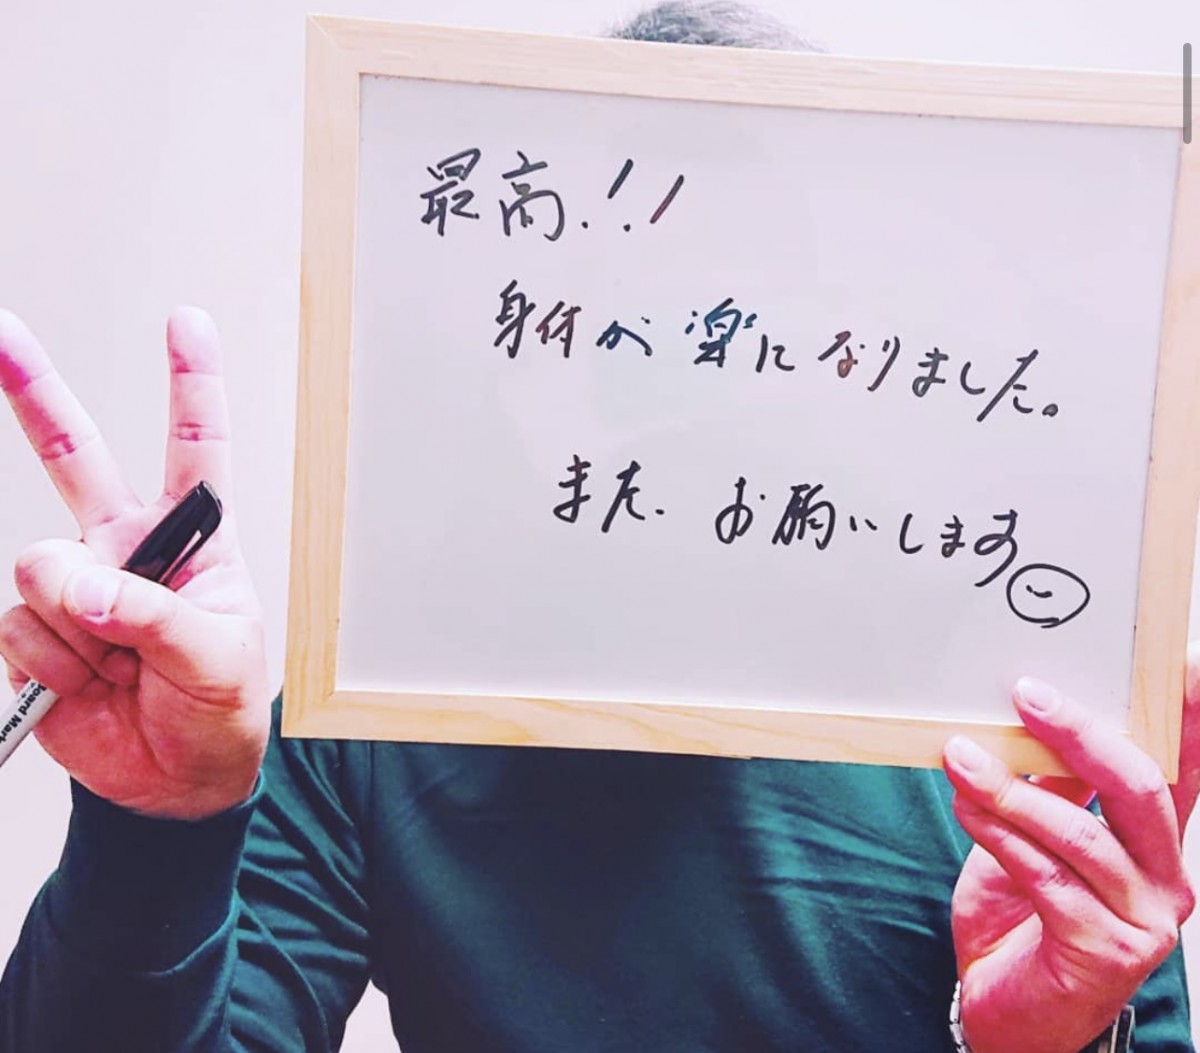 最高!!
身体が楽になりました。
また、お願いします
Board Mark